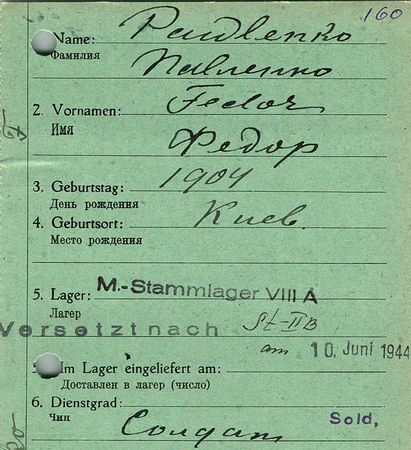 160
Name: Pawlenko
Фамилия Павленко
2. Vornamen: Fedor
Имя Федор
3. Geburtstag: 1904
День рождения
4. Geburtsort: Киев.
Место рождения
5. Lager: M.-Stammlager VIII A
Лагер
Versetzt nach St-IIB
am 10. Juni 1944
5. Im Lager eingeliefert am:
Доставлен в лагер (число)
6. Dienstgrad: Sold,
Чин Солдат